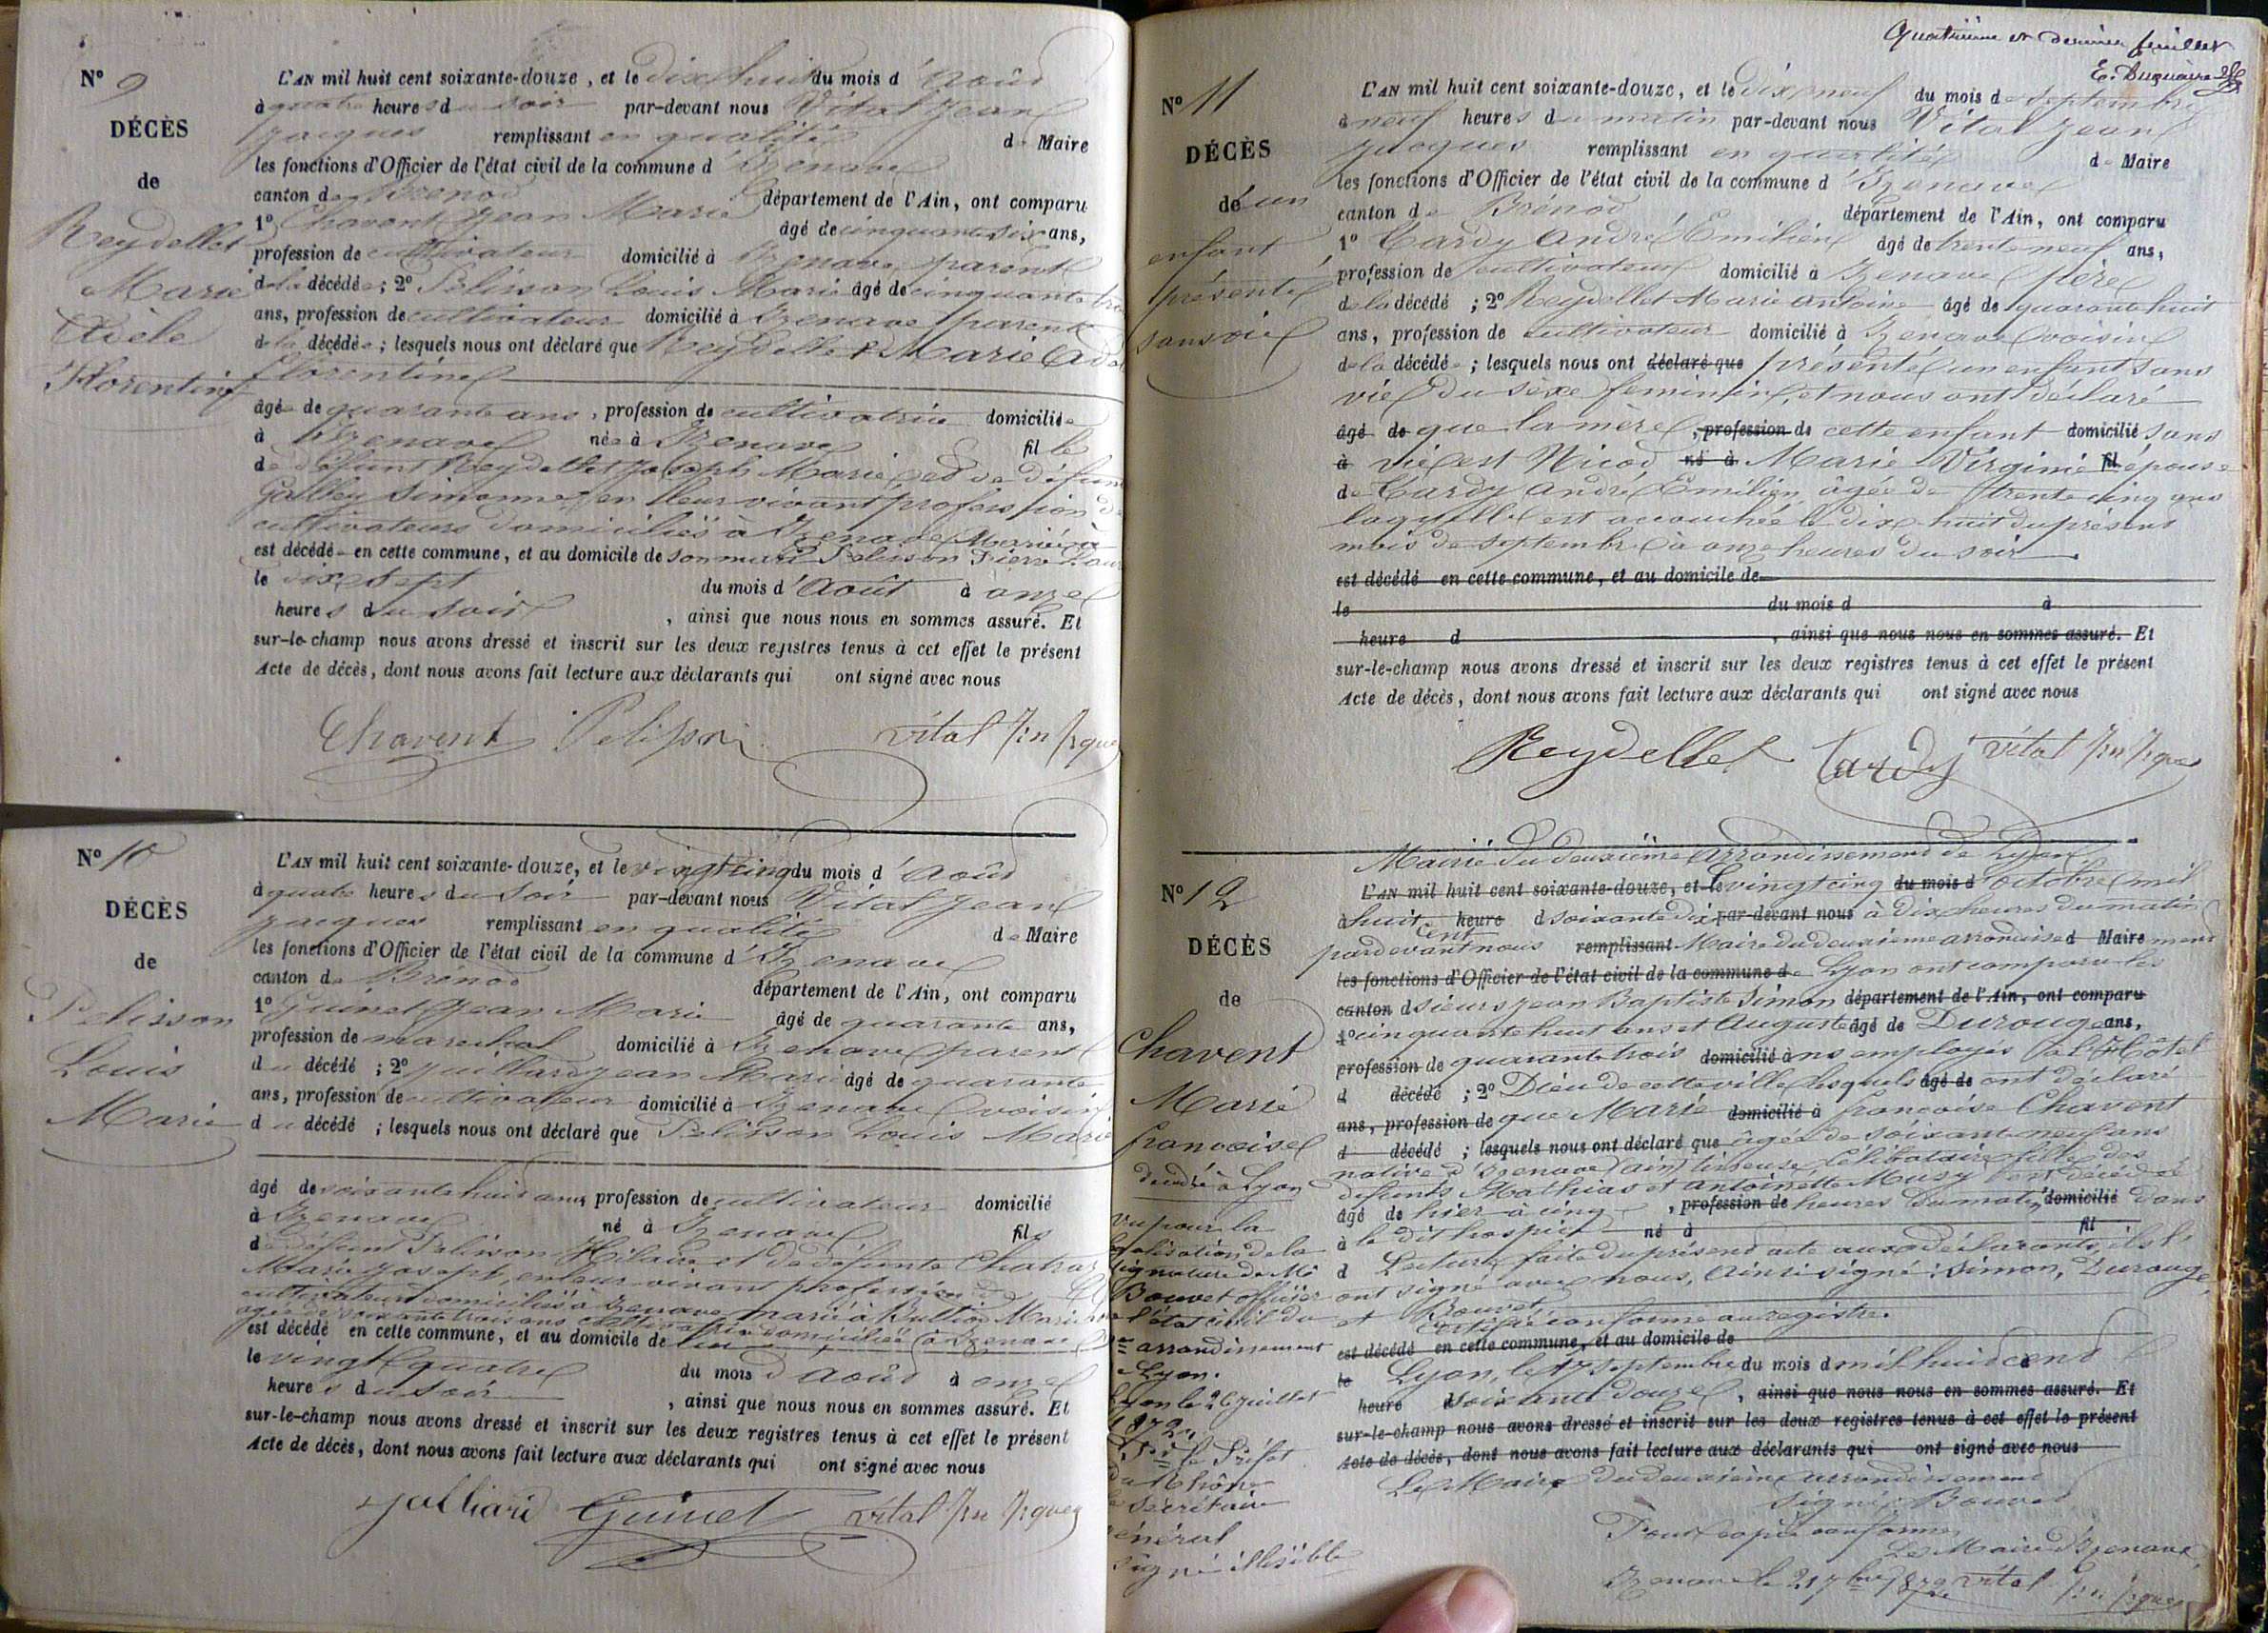 N° 9
DÉCÈS
de
Reydellet
Marie
Adèle
Florentine
L'AN mil huit cent soixante-douze, et le dix huit du mois d'Août
à quatre heures du soir par-devant nous Vital Jean
Jacques remplissant en qualité de Maire
les fonctions d'Officier de l'état civil de la commune d'Izenave
canton de Brenod département de l'Ain, ont comparu
1° Chavent Jean Marie âgé de cinquante six ans,
profession de cultivateur domicilié à Izenave, parent
de la décédée ; 2° Pelisson Louis Marie âgé de cinquante
ans, profession de cultivateur domicilié à Izenave parent
de la décédée ; lesquels nous ont déclaré que Reydellet Marie
Florentine
âgée de quarante ans, profession de cultivatrice domiciliée
à Izenave née à Izenave fille
de défunt Reydellet Joseph Marie et de
Galley Simonne, en leur vivant profession
cultivateurs domiciliés à Izenave, Mariée à
est décédée en cette commune, et au domicile de son mari Pelisson Pierre
le dix sept du mois d'Août à onze
heures du soir, ainsi que nous nous en sommes assuré. Et
sur-le-champ nous avons dressé et inscrit sur les deux registres tenus à cet effet le présent
Acte de décès, dont nous avons fait lecture aux déclarants qui ont signé avec nous
Chavent Pelisson vital Jn Jques
N° 10
DÉCÈS
de
Pelisson
Louis
Marie
L'AN mil huit cent soixante-douze, et le vingt cinq du mois d'Août
à quatre heures du soir par-devant nous Vital Jean
Jacques remplissant en qualité de Maire
les fonctions d'Officier de l'état civil de la commune d'Izenave
canton de Brénod département de l'Ain, ont comparu
1° Guinet Jean Marie âgé de quarante ans,
profession de marechal domicilié à Izenave parent
du décédé ; 2° Juillard Jean Marie âgé de quarante
ans, profession de cultivateur domicilié à Izenave voisin
du décédé ; lesquels nous ont déclaré que Pelisson Louis Marie
âgé de soixante huit ans, profession de cultivateur domicilié
à Izenave né à Izenave fils
de défunt Pelisson Hilaire et de défunte
Marie Joseph, en leur vivant profession de
cultivateurs domiciliés à Izenave, marié à Marie
âgée de soixante trois ans cultivatrice domiciliée à Izenave
est décédé en cette commune, et au domicile de
le vingt quatre du mois d'Août à onze
heures du soir, ainsi que nous nous en sommes assuré. Et
sur-le-champ nous avons dressé et inscrit sur les deux registres tenus à cet effet le présent
Acte de décès, dont nous avons fait lecture aux déclarants qui ont signé avec nous
Guinet vital Jn Jques
Quatrième et dernier feuillet
N° 11
DÉCÈS
d'un
enfant
présenté
sans vie
L'AN mil huit cent soixante-douze, et le dix neuf du mois de septembre
à neuf heures du matin par-devant nous Vital Jean
Jacques remplissant en qualité de Maire
les fonctions d'Officier de l'état civil de la commune d'Izenave
canton de Brénod département de l'Ain, ont comparu
1° Tardy André Emilien âgé de trente neuf ans,
profession de cultivateur domicilié à Izenave père
de la décédé ; 2° Reydellet Marie Antoine âgé de quarante huit
ans, profession de cultivateur domicilié à Izenave voisin
de la décédée ; lesquels nous ont déclaré que présenté un enfant sans
vie du sèxe feminin, et nous ont déclaré
âgé de que la mère, profession de cette enfant domicilié sans
à vie est Nicod né à Marie Virginie fil épouse
de Tardy André Emilien, âgée de trente cinq ans
laquelle est accouchée le dix huit du présent
mois de septembre à onze heures du soir
est décédé en cette commune, et au domicile de
le du mois d à
heure d , ainsi que nous nous en sommes assuré. Et
sur-le-champ nous avons dressé et inscrit sur les deux registres tenus à cet effet le présent
Acte de décès, dont nous avons fait lecture aux déclarants qui ont signé avec nous
Reydellet Tardy vital Jn Jques
N° 12
DÉCÈS
de
Chavent
Marie
françoise
décédée à Lyon
Vu pour la
légalisation de la
signature de Mr
Bouvet officier
de l'état civil du
arrondissement
Lyon.
Lyon le 26 Juillet
1872
le Préfet
du Rhône
le secrétaire
général
signé illisible
Mairie du deuxième arrondissement de Lyon
L'AN mil huit cent soixante-douze, et le vingt cinq du mois d octobre mil
à huit heure d soixante dix par-devant nous à dix heures du matin
cent
pardevant nous remplissant Maire du deuxième arrondisse d Maire ment
les fonctions d'Officier de l'état civil de la commune de Lyon ont comparu les
canton d sieurs Jean Baptiste Simon département de l'Ain, ont comparu
1° cinquante huit ans et Auguste âgé de Durouge ans,
profession de quarante trois domicilié à ns employés à l'Hôtel
d décédé ; 2° Dieu de cette ville lesquels âgé de ont déclaré
ans, profession de que Marie domicilié à françoise Chavent
d décédé ; lesquels nous ont déclaré que âgée de soixante neuf ans
native d'Izenave (Ain) tisseuse Célibataire fille des
défunts Mathias et Antoinette Musy est décédée
âgé de hier à cinq, profession de heures du matin domicilié dans
à le dit hospice né à fil
d Lecture faite du présent acte aux déclarants, ils
ont signé avec nous, Ainsi signé : Simon, Durouge,
et Bouvet,
Certifié conforme au registre.
est décédé en cette commune, et au domicile de
le Lyon, le 17 septembre du mois d mil huit à cent
heure d soixante douze, ainsi que nous nous en sommes assuré. Et
sur-le-champ nous avons dressé et inscrit sur les deux registres tenus à cet effet le présent
Acte de décès, dont nous avons fait lecture aux déclarants qui ont signé avec nous
Le Maire du deuxième arrondissement
signé Bouvet
Pour copie conforme
Le Maire d'Izenave,
Izenave le 21 7bre 1872 vital Jn Jques